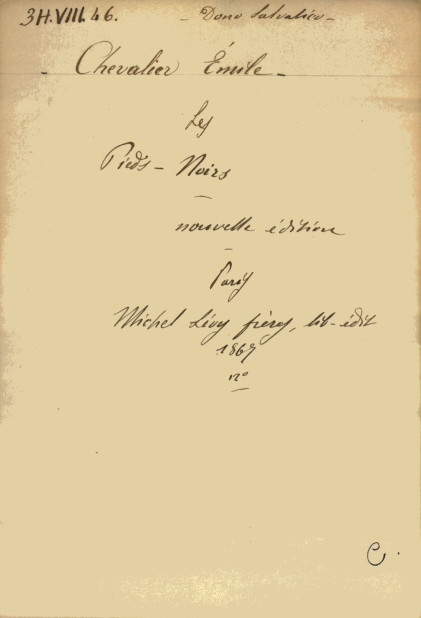 3H.VIII.46. - Dono Salvalico -
- Chevalier Émile -
Les
Pieds-Noirs
—
nouvelle édition
-
Paris
Michel Lévy frères, lib-édit
1867
nº
C.